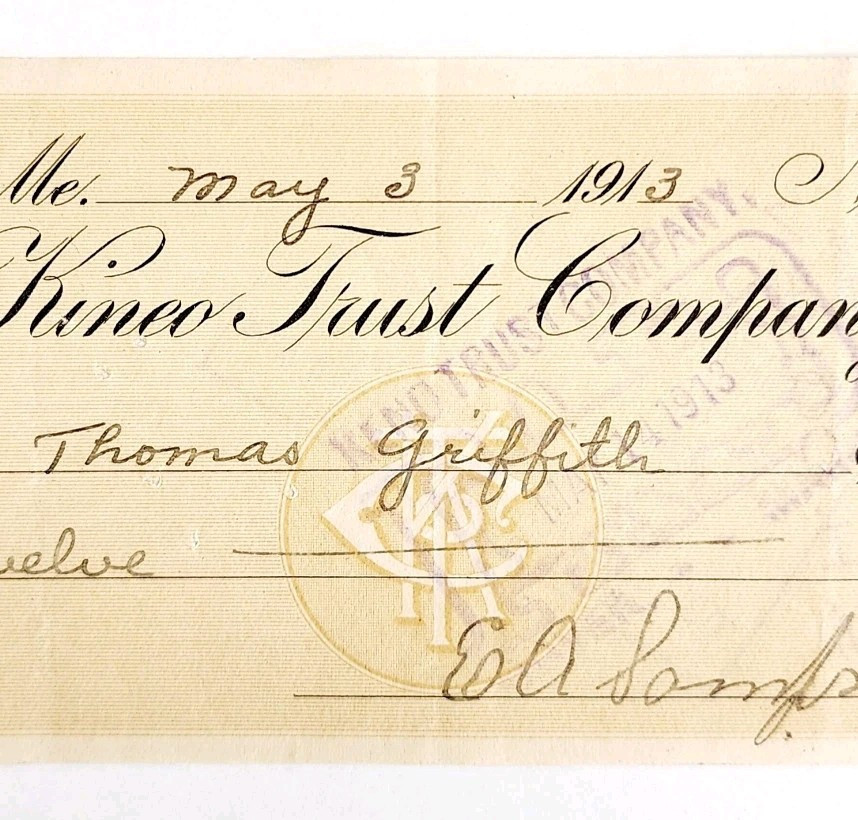 Me. May 3 1913 N
Kineo Trust Company
KINEO TRUST COMPANY.
1913
Thomas Griffith
welve
E A Samps